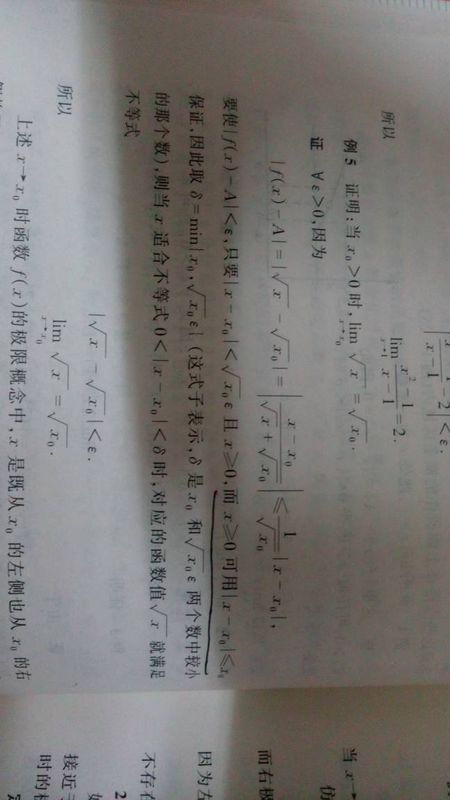 | x²-1/x-1 - 2 | < ε.
所以
lim x→1 x²-1/x-1 = 2.
例 5 证明:当 x₀>0 时, lim x→x₀ √x = √x₀.
证 ∀ε>0,因为
|f(x)-A| = |√x-√x₀| = |x-x₀/√x+√x₀| ≤ 1/√x₀ |x-x₀|,
要使|f(x)-A|<ε,只要|x-x₀|<√x₀ε 且 x≥0,而 x≥0 可用|x-x₀|≤x₀
保证,因此取 δ=min{x₀,√x₀ε}(这式子表示,δ 是 x₀ 和√x₀ε 两个数中较小
的那个数),则当 x 适合不等式 0<|x-x₀|<δ 时,对应的函数值√x 就满足
不等式
|√x-√x₀|<ε.
所以
lim x→x₀ √x = √x₀.
上述 x→x₀ 时函数 f(x)的极限概念中,x 是既从 x₀ 的左侧也从 x₀ 的右
当 x→
仿
而右极
因为左
不存在
2
如
接近于
时的极